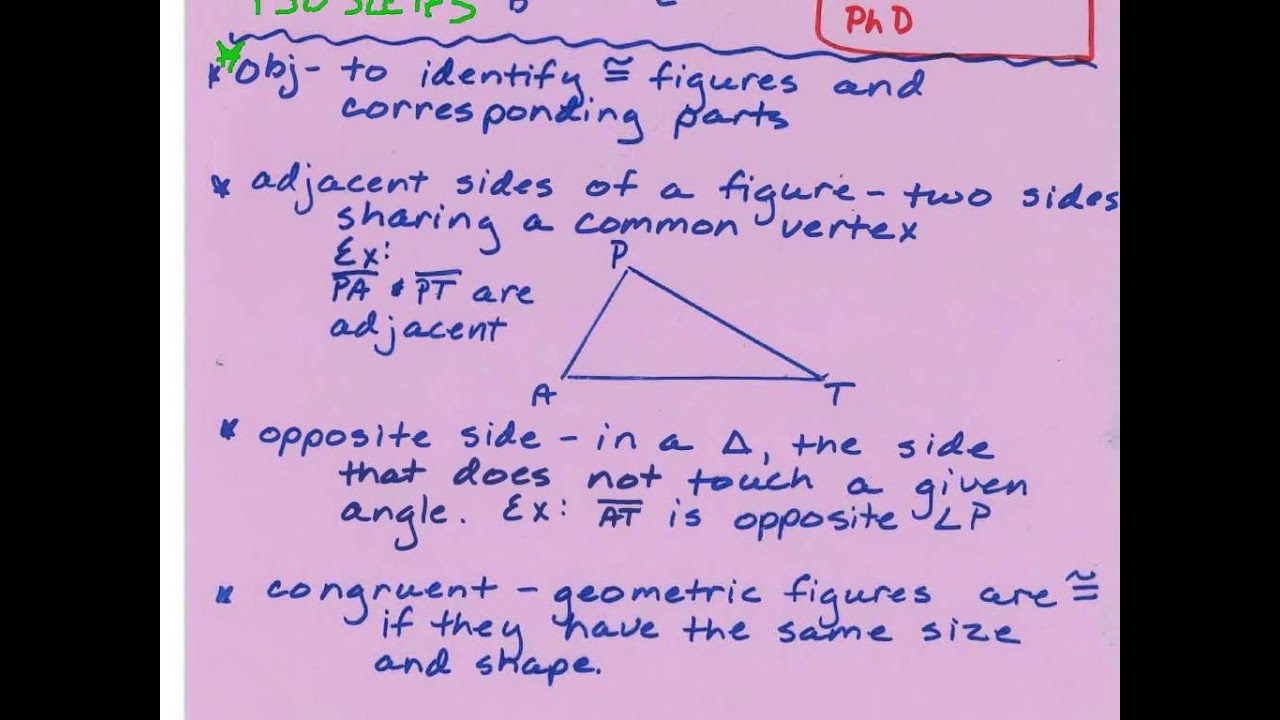 PhD
* obj- to identify ≅ figures and
corresponding parts
* adjacent sides of a figure - two sides
sharing a common vertex
Ex:
P
PA & PT are
adjacent
A
T
* opposite side - in a Δ, the side
that does not touch a given
angle. Ex: AT is opposite ∠P
* congruent - geometric figures are ≅
if they have the same size
and shape.